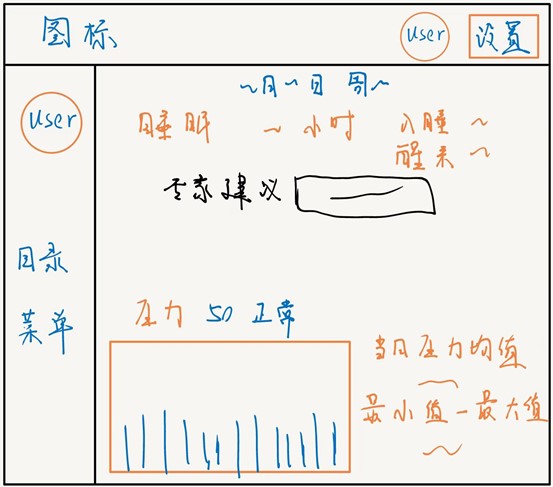 图标
user 设置
user
目录
菜单
~月~日 周~
睡眠 ~小时 入睡 ~
醒来 ~
专家建议
压力 50 正常
当日压力均值
~
最小值-最大值
~